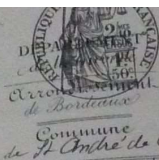 RÉPUBLIQUE FRANÇAISE
DÉPARTEMENT
Arrondissement
de Bordeaux
Commune
de St André de